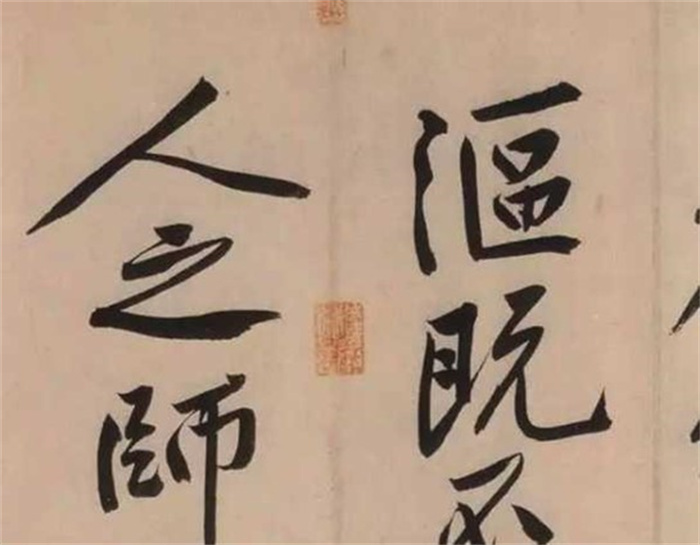 漚既不
人之師